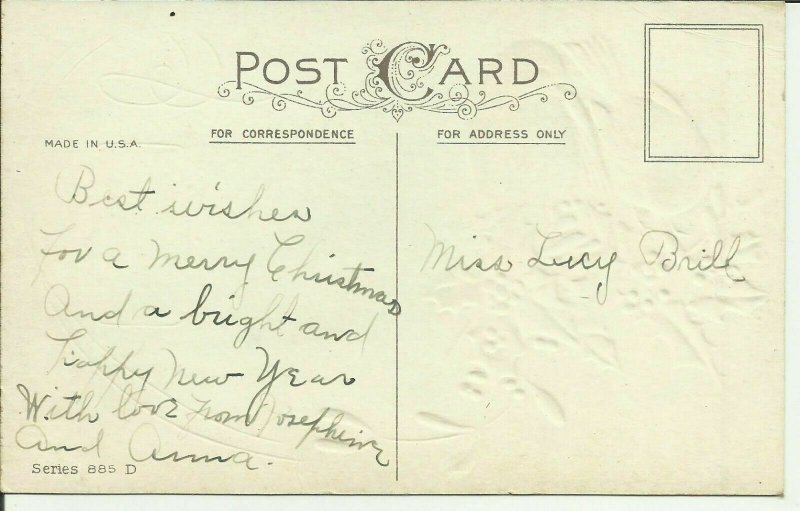 POST CARD
FOR CORRESPONDENCE
FOR ADDRESS ONLY
MADE IN U.S.A.
Best wishes
For a merry Christmas
And a bright and
Happy New Year
With love from Josephine
And Anna.
Series 885 D
Miss Lucy Brill